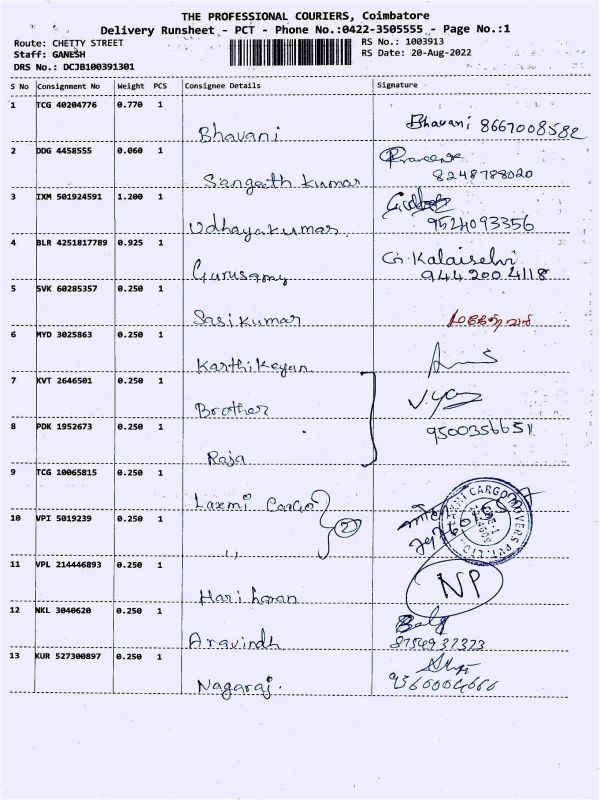 THE PROFESSIONAL COURIERS, Coimbatore
Delivery Runsheet - PCT - Phone No.:0422-3505555 - Page No.:1
Route: CHETTY STREET
RS No.: 1003913
Staff: GANESH
RS Date: 20-Aug-2022
DRS No.: DCJB100391301
S No Consignment No Weight PCS Consignee Details Signature
1 TCG 40204776 0.770 1
Bhavani Bhavani 8667008582
2 DDG 4458555 0.060 1
Sangeeth Kumar 8248788020
3 IXM 501924591 1.200 1
Udhayakumar 9524093356
4 BLR 4251817789 0.925 1 G. Kalaiselvi
Gurusamy 9442004118
5 SVK 60285357 0.250 1
Sasikumar
6 MYD 3025863 0.250 1
Karthikeyan
7 KVT 2646501 0.250 1
Brother
8 PDK 1952673 0.250 1 9500356651
Raja
9 TCG 10065815 0.250 1
Laxmi Cargo
10 VPI 5019239 0.250 1 2
,,
11 VPL 214446893 0.250 1 NP
Hari haran
12 NKL 3040620 0.250 1
Aravindh 8754937373
13 KUR 527300897 0.250 1
Nagaraj.